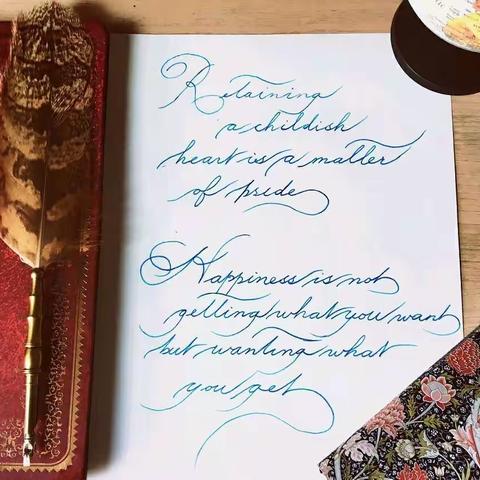 Retaining
a childish
heart is a matter
of pride
Happiness is not
getting what you want
but wanting what
you get